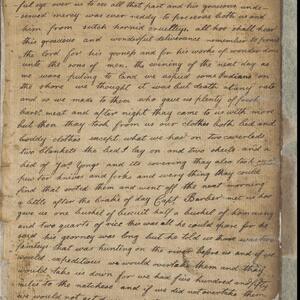 ful eye over us to see all that past and his gracious unde-
served mercy was ever ready to preserve both us and
him from sutch horrid cruelteys. all hoo shall hear
this gracious and wonderful deliverence remember to praise
the lord for his goness and for his works of wonder done
unto the sons of men. the evening of the next day as
we ware puling to land we aspied some Indians on
the shore we thought it was but death at any rate
and so we made to them who gave us plenty of fresh
bares meat and after night they came to us with more
but then thay took from us over clothes both bed and
boddy clothes except what we had on two coverleds
two blankets the bed I lay on and two sheets and a
bed of Jas. Gongs and its covering thay also took
puter knives and forks and every thing they could
find that sooted them and went off the next morning
a little after the brake of day Capt. Barber met us hee
gave us one bushel of biscuit half a bushel of hommeny
and two quarts of rice this was all he could spare for he
said his gerney was long but he told us thare was
fameleys that was hunting on the river before us and if we
would expeditious we would overtake them and thay
would take us down for we had five hundred and fifty
miles to the natchees and if we did not overtake them
we would not get